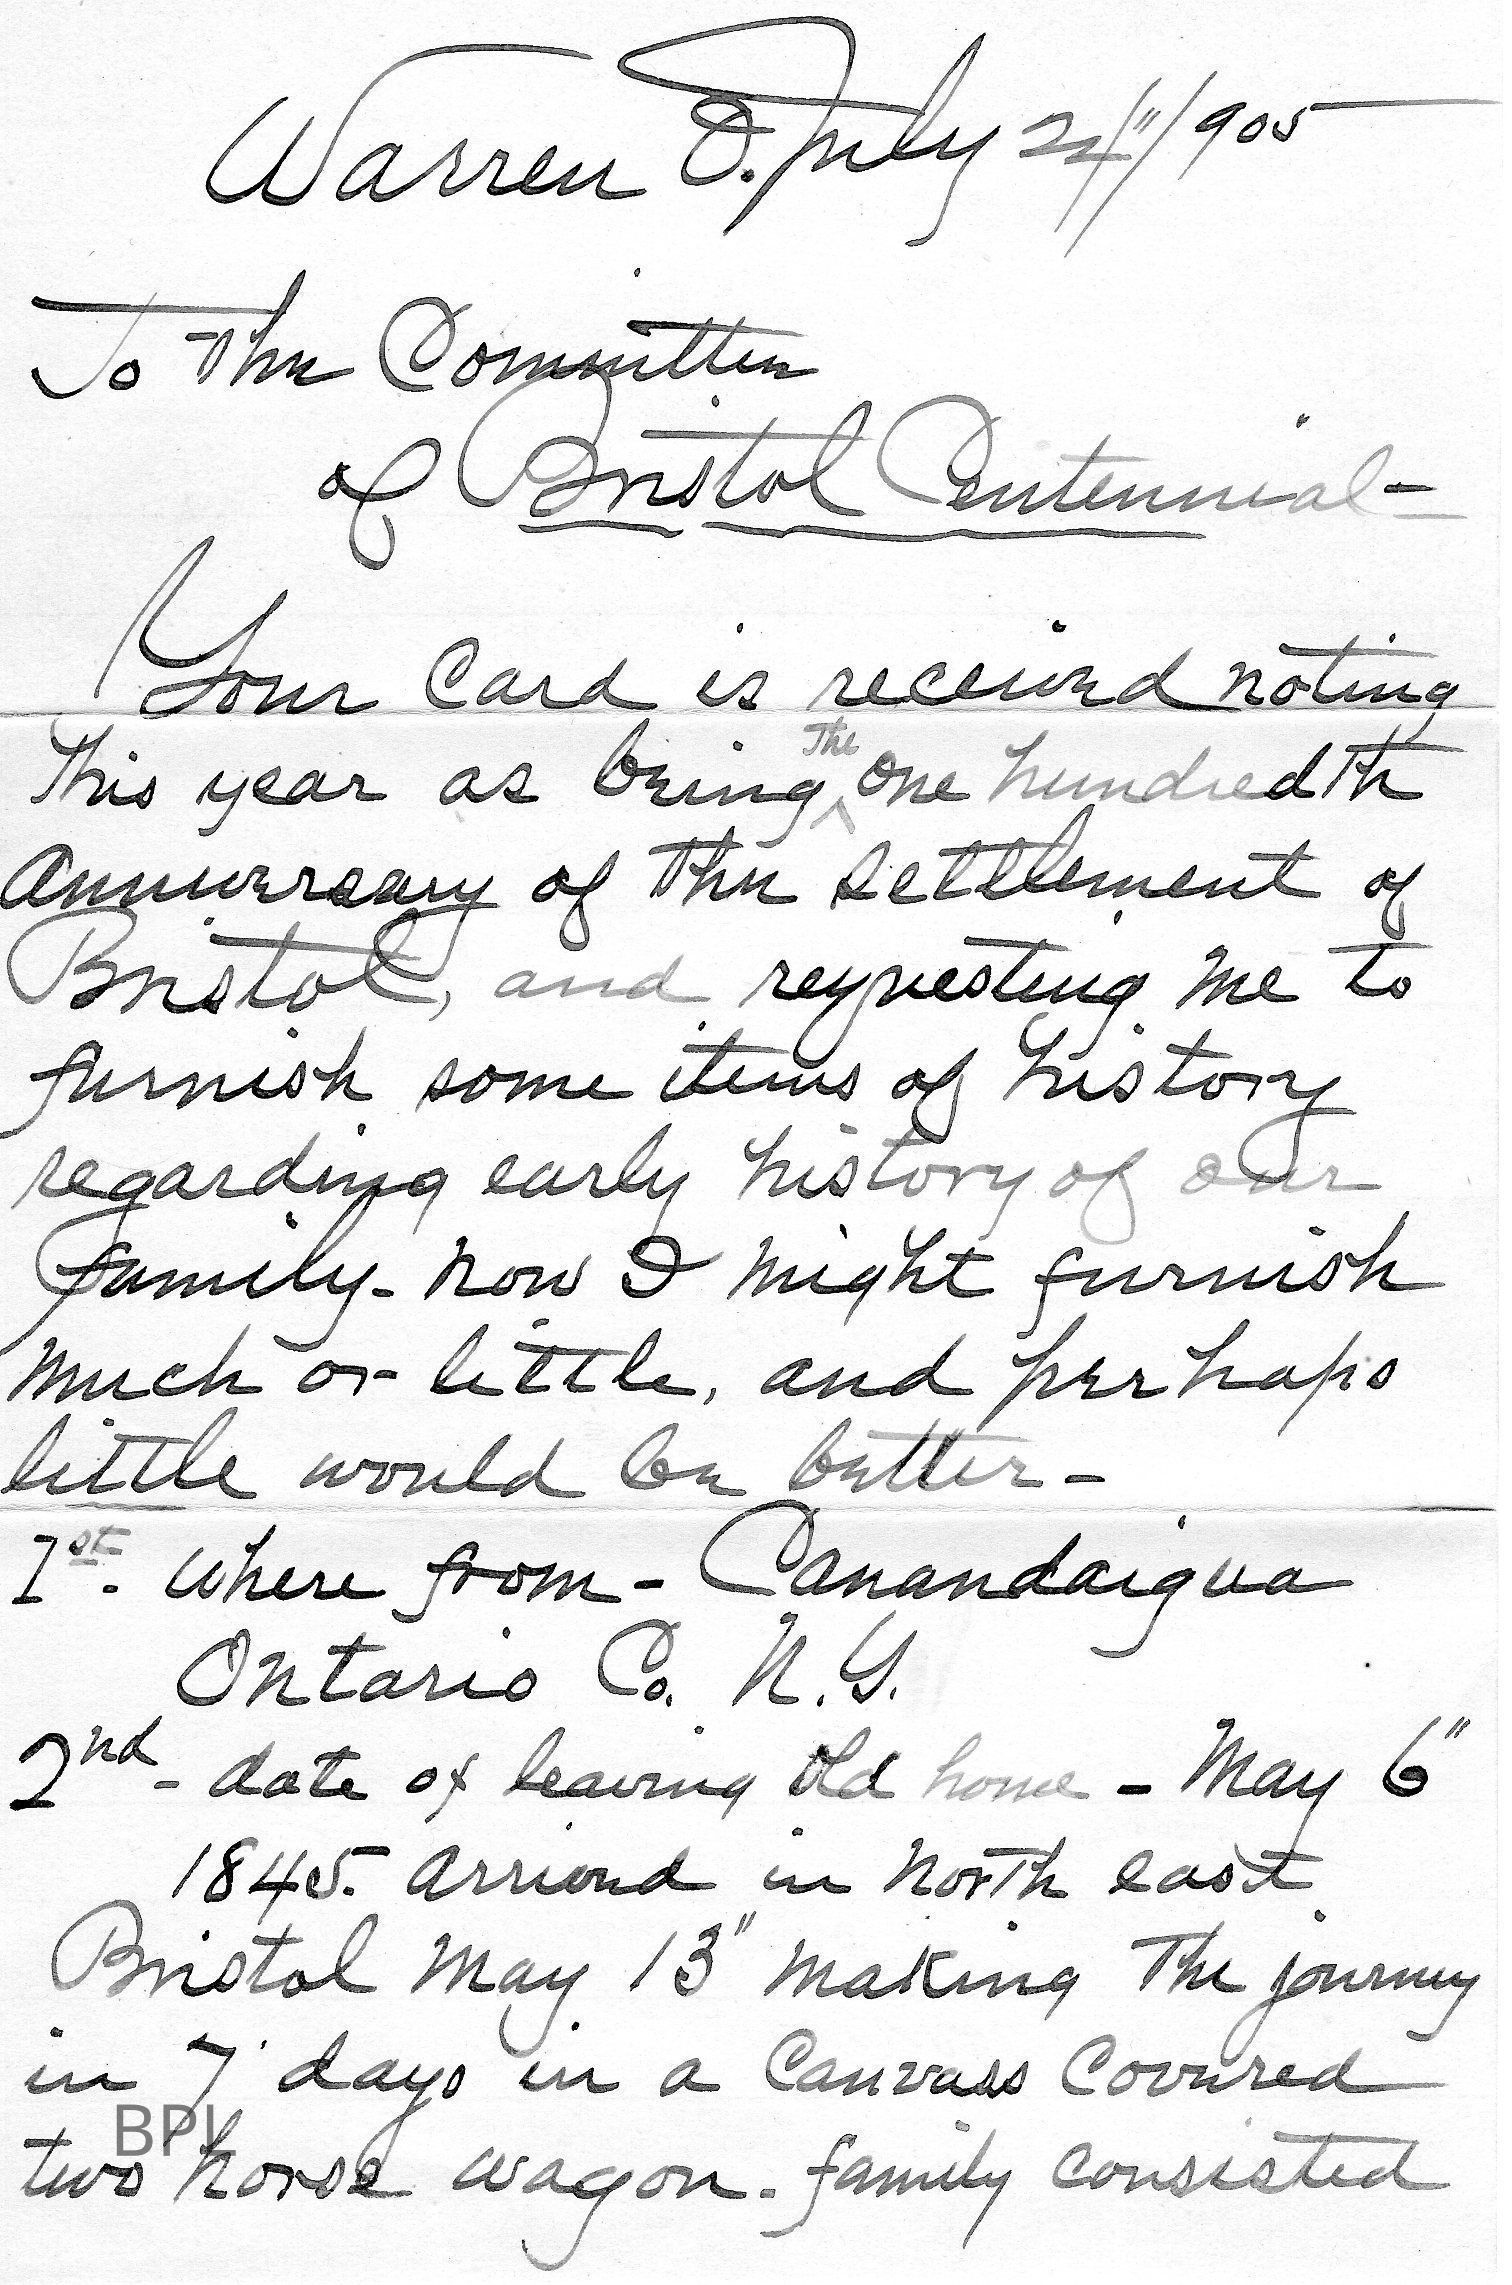 Warren O. July 24"/1905
To The Committee
of Bristol Centennial -
Your Card is received noting
This year as being The one hundredth
Anniversary of The settlement of
Bristol, and requesting me to
furnish some items of history
regarding early history of our
family - Now I might furnish
much or little, and perhaps
little would be better -
1st. Where from - Canandaigua
Ontario Co. N.Y.
2nd - date of leaving old home - May 6"
1845. Arrived in North east
Bristol May 13" making The journey
in 7 days in a Canvass Covered
two horse wagon. family consisted
BPL